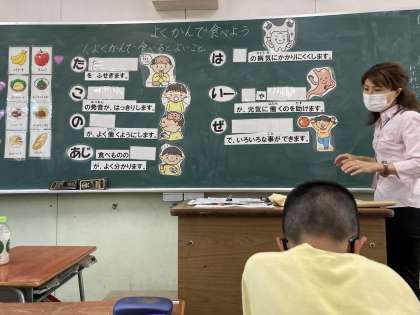 よくかんで食べよう
よくかんで食べるとよいこと
た
を ふせぎます。
こ
の発音が、はっきりします。
の
が、よく働くようにします。
あじ
食べものの
が、よく分かります。
は
の病気にかかりにくくします。
いー
や
が、元気に働くのを助けます。
ぜ
で、いろいろな事ができます。